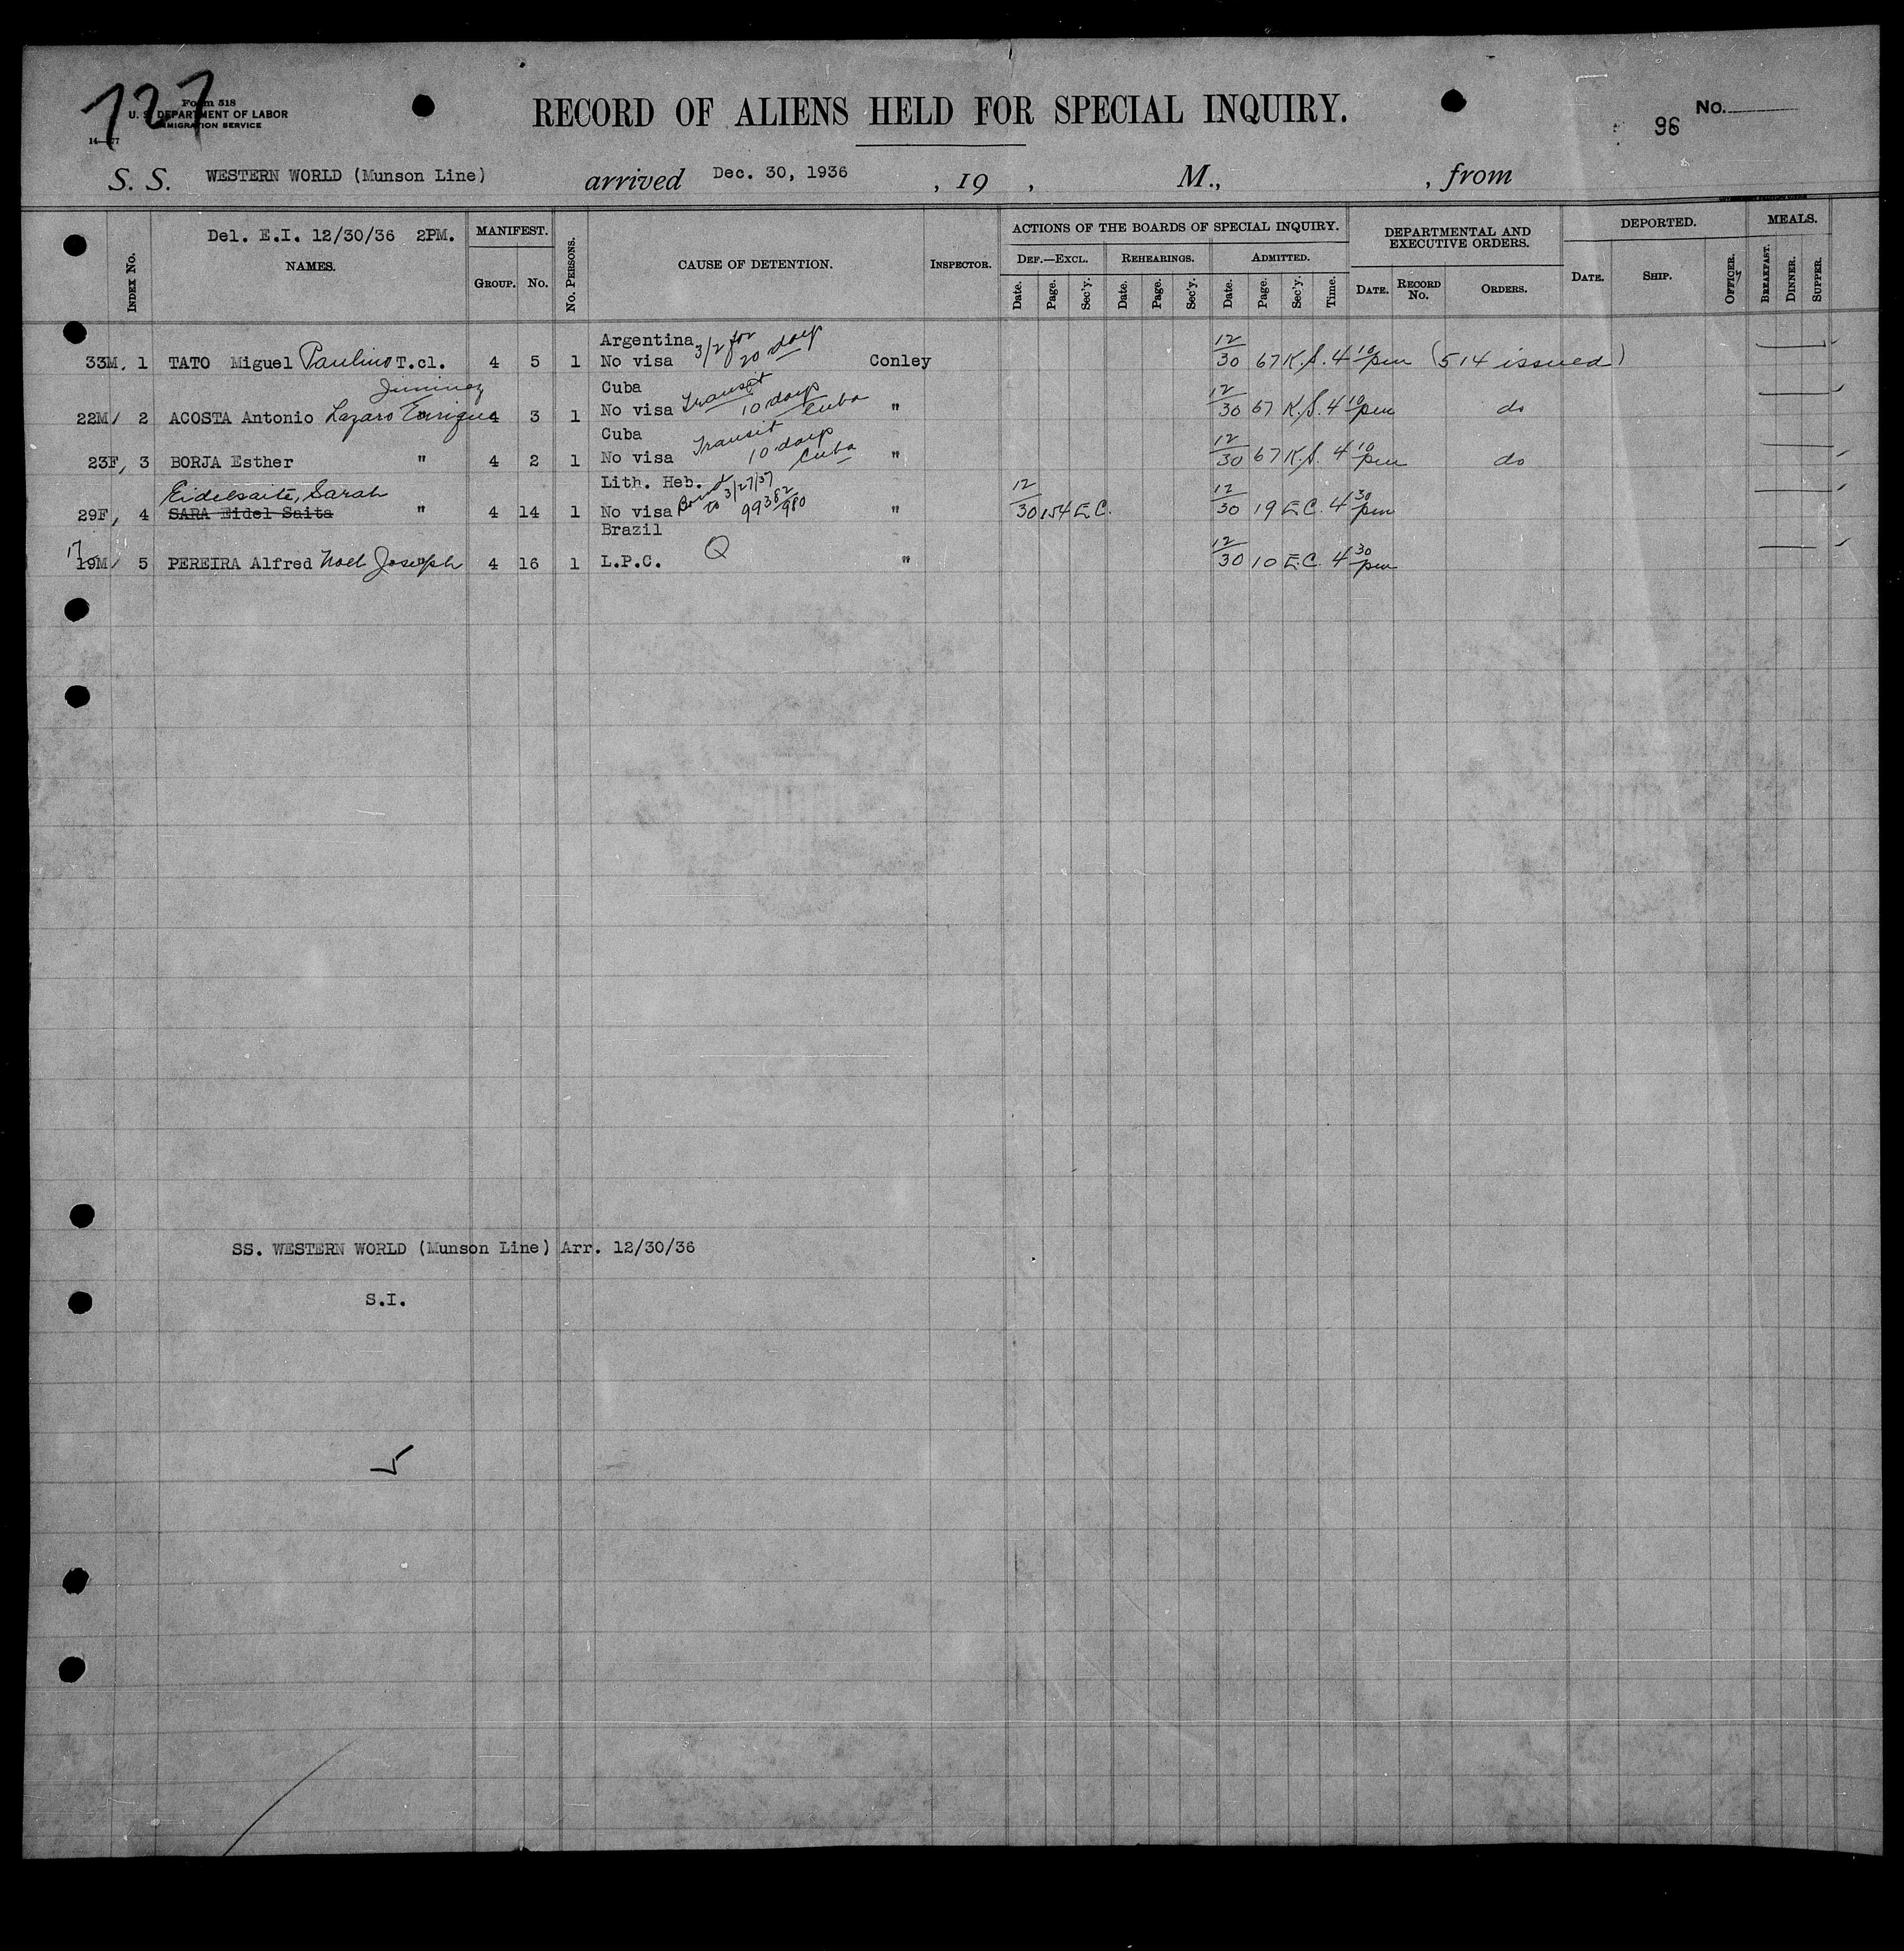 727
Form 518
U. S. DEPARTMENT OF LABOR
IMMIGRATION SERVICE
RECORD OF ALIENS HELD FOR SPECIAL INQUIRY.
No.
96
S. S. WESTERN WORLD (Munson Line) arrived Dec. 30, 1936 , 19 , M., , from
Del. E.I. 12/30/36 2PM.
INDEX No. NAMES. MANIFEST. GROUP. No. No. PERSONS. CAUSE OF DETENTION. INSPECTOR. ACTIONS OF THE BOARDS OF SPECIAL INQUIRY. DEPARTMENTAL AND EXECUTIVE ORDERS. DEPORTED. MEALS.
DEF.—EXCL. REHEARINGS. ADMITTED.
Date. Page. Sec'y. Date. Page. Sec'y. Date. Page. Sec'y. Time. DATE. RECORD No. ORDERS. DATE. SHIP. OFFICER. BREAKFAST. DINNER. SUPPER.
Argentina 3/2 for 20 days
33M, 1 TATO Miguel Paulino T.cl. 4 5 1 No visa Conley 12/30 67 K.S. 4 10 pm (514 issued)
Jiminez Cuba Transit 10 days Cuba
22M/ 2 ACOSTA Antonio Lazaro Enrique " 4 3 1 No visa " 12/30 67 K.S. 4 10 pm do
Cuba Transit 10 days Cuba
23F, 3 BORJA Esther " 4 2 1 No visa " 12/30 67 K.S. 4 10 pm do
Eidelsaite, Sarah Lith. Heb. Bond to 3/27/37 99382/980
29F, 4 SARA Eidel Saita " 4 14 1 No visa " 12/30 154 E.C. 12/30 19 E.C. 4 30 pm
17 Brazil Q
19M/ 5 PEREIRA Alfred Noel Joseph " 4 16 1 L.P.C. " 12/30 10 E.C. 4 30 pm
SS. WESTERN WORLD (Munson Line) Arr. 12/30/36
S.I.